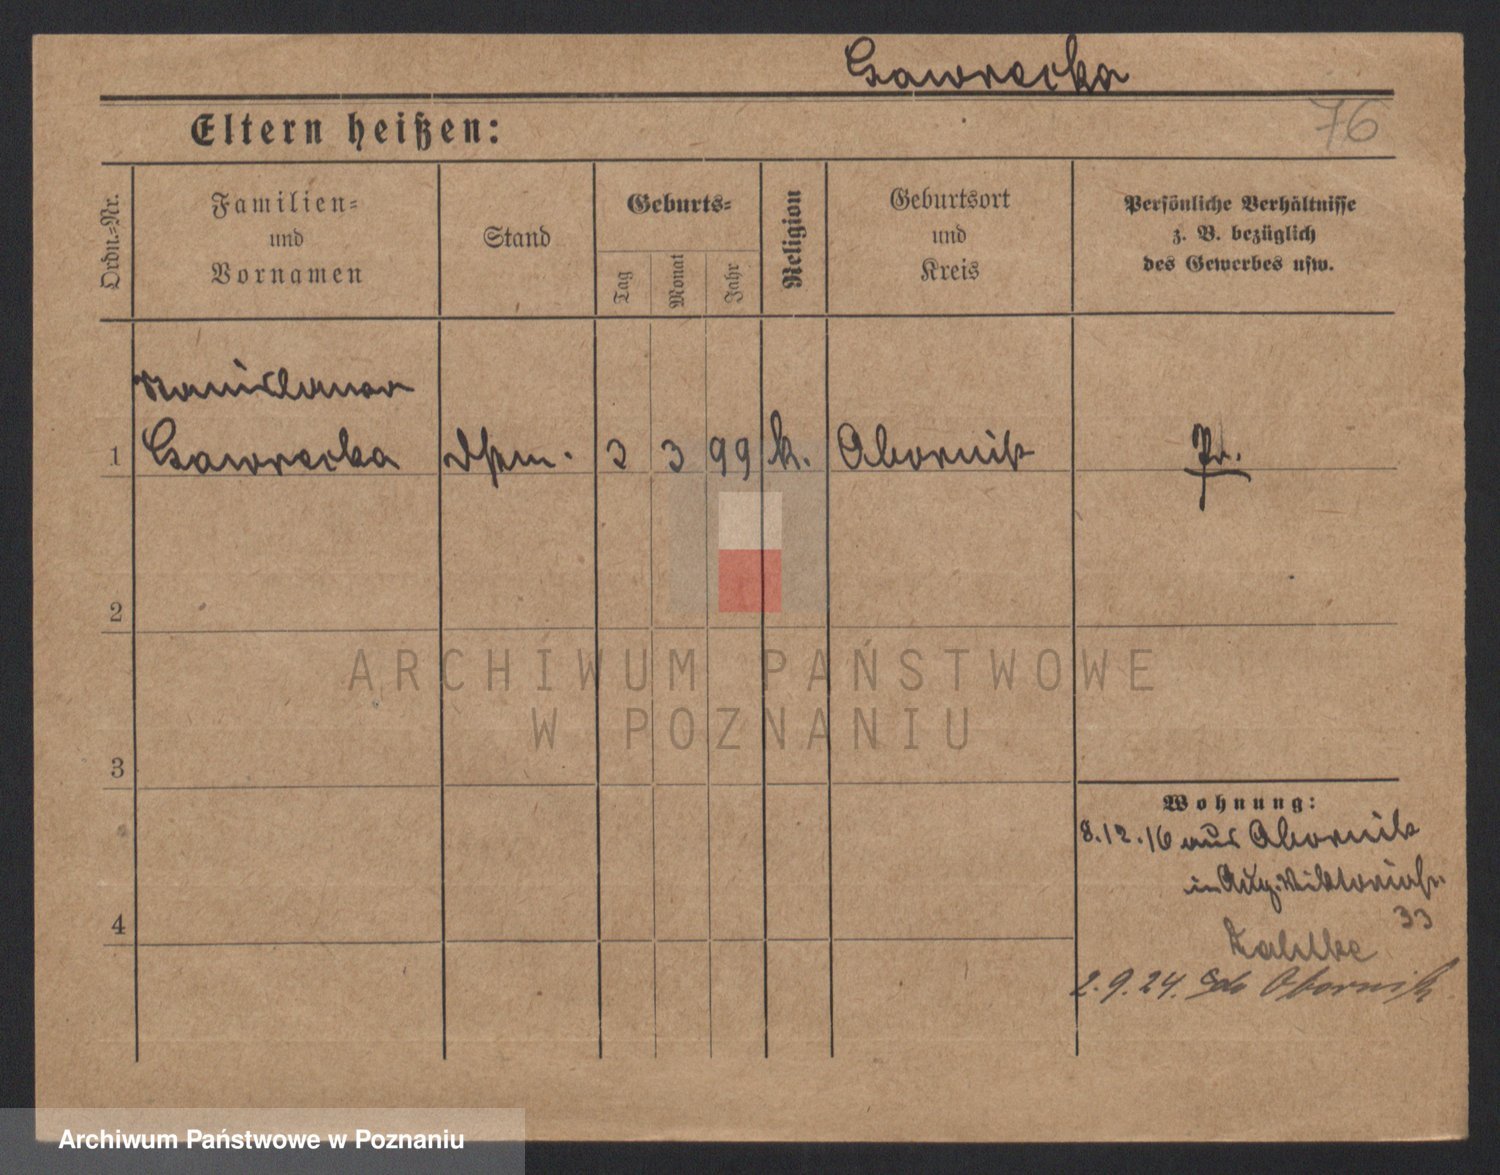 Gawrecka
76
Eltern heißen:
Ordn.-Nr.
Familien-
und
Vornamen
Stand
Geburts-
Tag
Monat
Jahr
Religion
Geburtsort
und
Kreis
Persönliche Verhältnisse
z. B. bezüglich
des Gewerbes usw.
1
Stanislawa
Gawrecka
3 3 99 k. Obornik Pr.
2
ARCHIWUM PAŃSTWOWE
W POZNANIU
3
Wohnung:
8.12.16 aus Obornik
in Aug. Viktoriastr.
33
2.9.24. Obornik
4
Archiwum Państwowe w Poznaniu